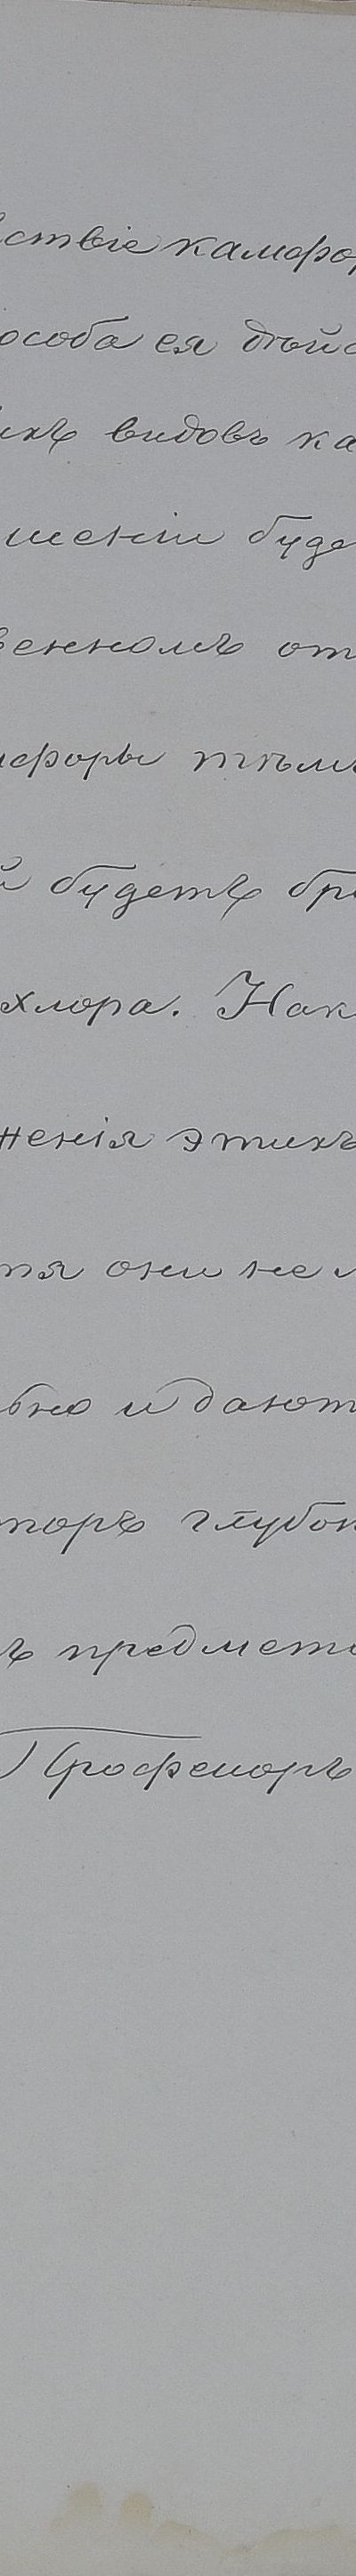 ствіе камфо
особа ея дѣйс
ихъ видовъ ка
шеніи буде
венномъ от
мфоры тѣмъ
й будетъ бр
хлора. Нак
женія этихъ
тя они не
ьно и дают
торъ глубок
ъ предмет
Профессоръ